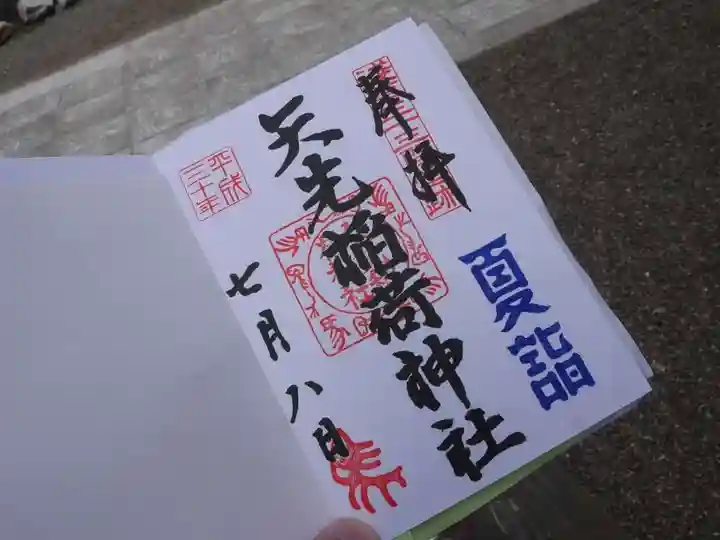 奉拝
夏詣
矢先稲荷神社
平成三十年
七月八日